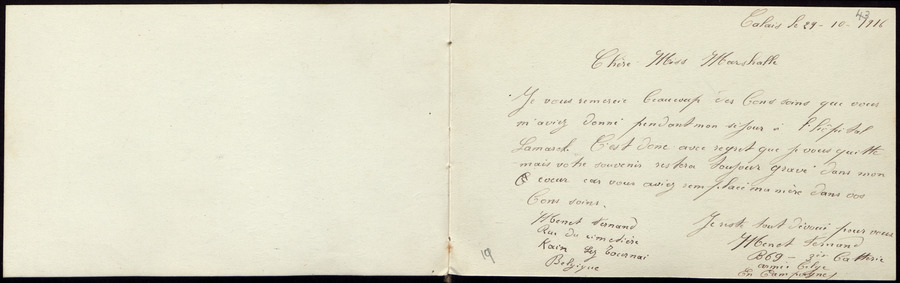 43
Calais le 29-10-1916
Chère Miss Marshalle
Je vous remercie beaucoup des bons soins que vous
m'aviez donné pendant mon séjour à l'hôpital
Lamarck. C'est donc avec regret que je vous quitte
mais votre souvenir restera toujour gravé dans mon
coeur car vous aviez remplacé ma mère dans vos
bons soins.
Je reste tout dévoué pour vous
Menet Fernand
B69 - 3ie Batterie
armée Belge
En Campagne
Menet Fernand
Rue du cimetière
Kain lez Tournai
Belgique
19